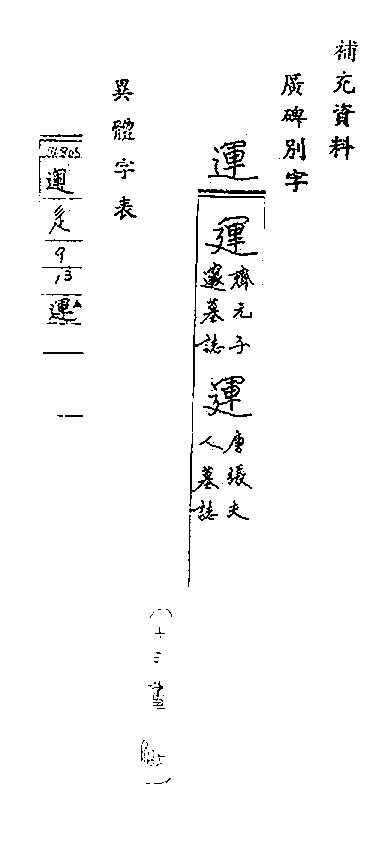 補充資料
廣碑別字
運
運 齊元子邃墓誌
運 唐張夫人墓誌
異體字表
運
辵
9
13
運